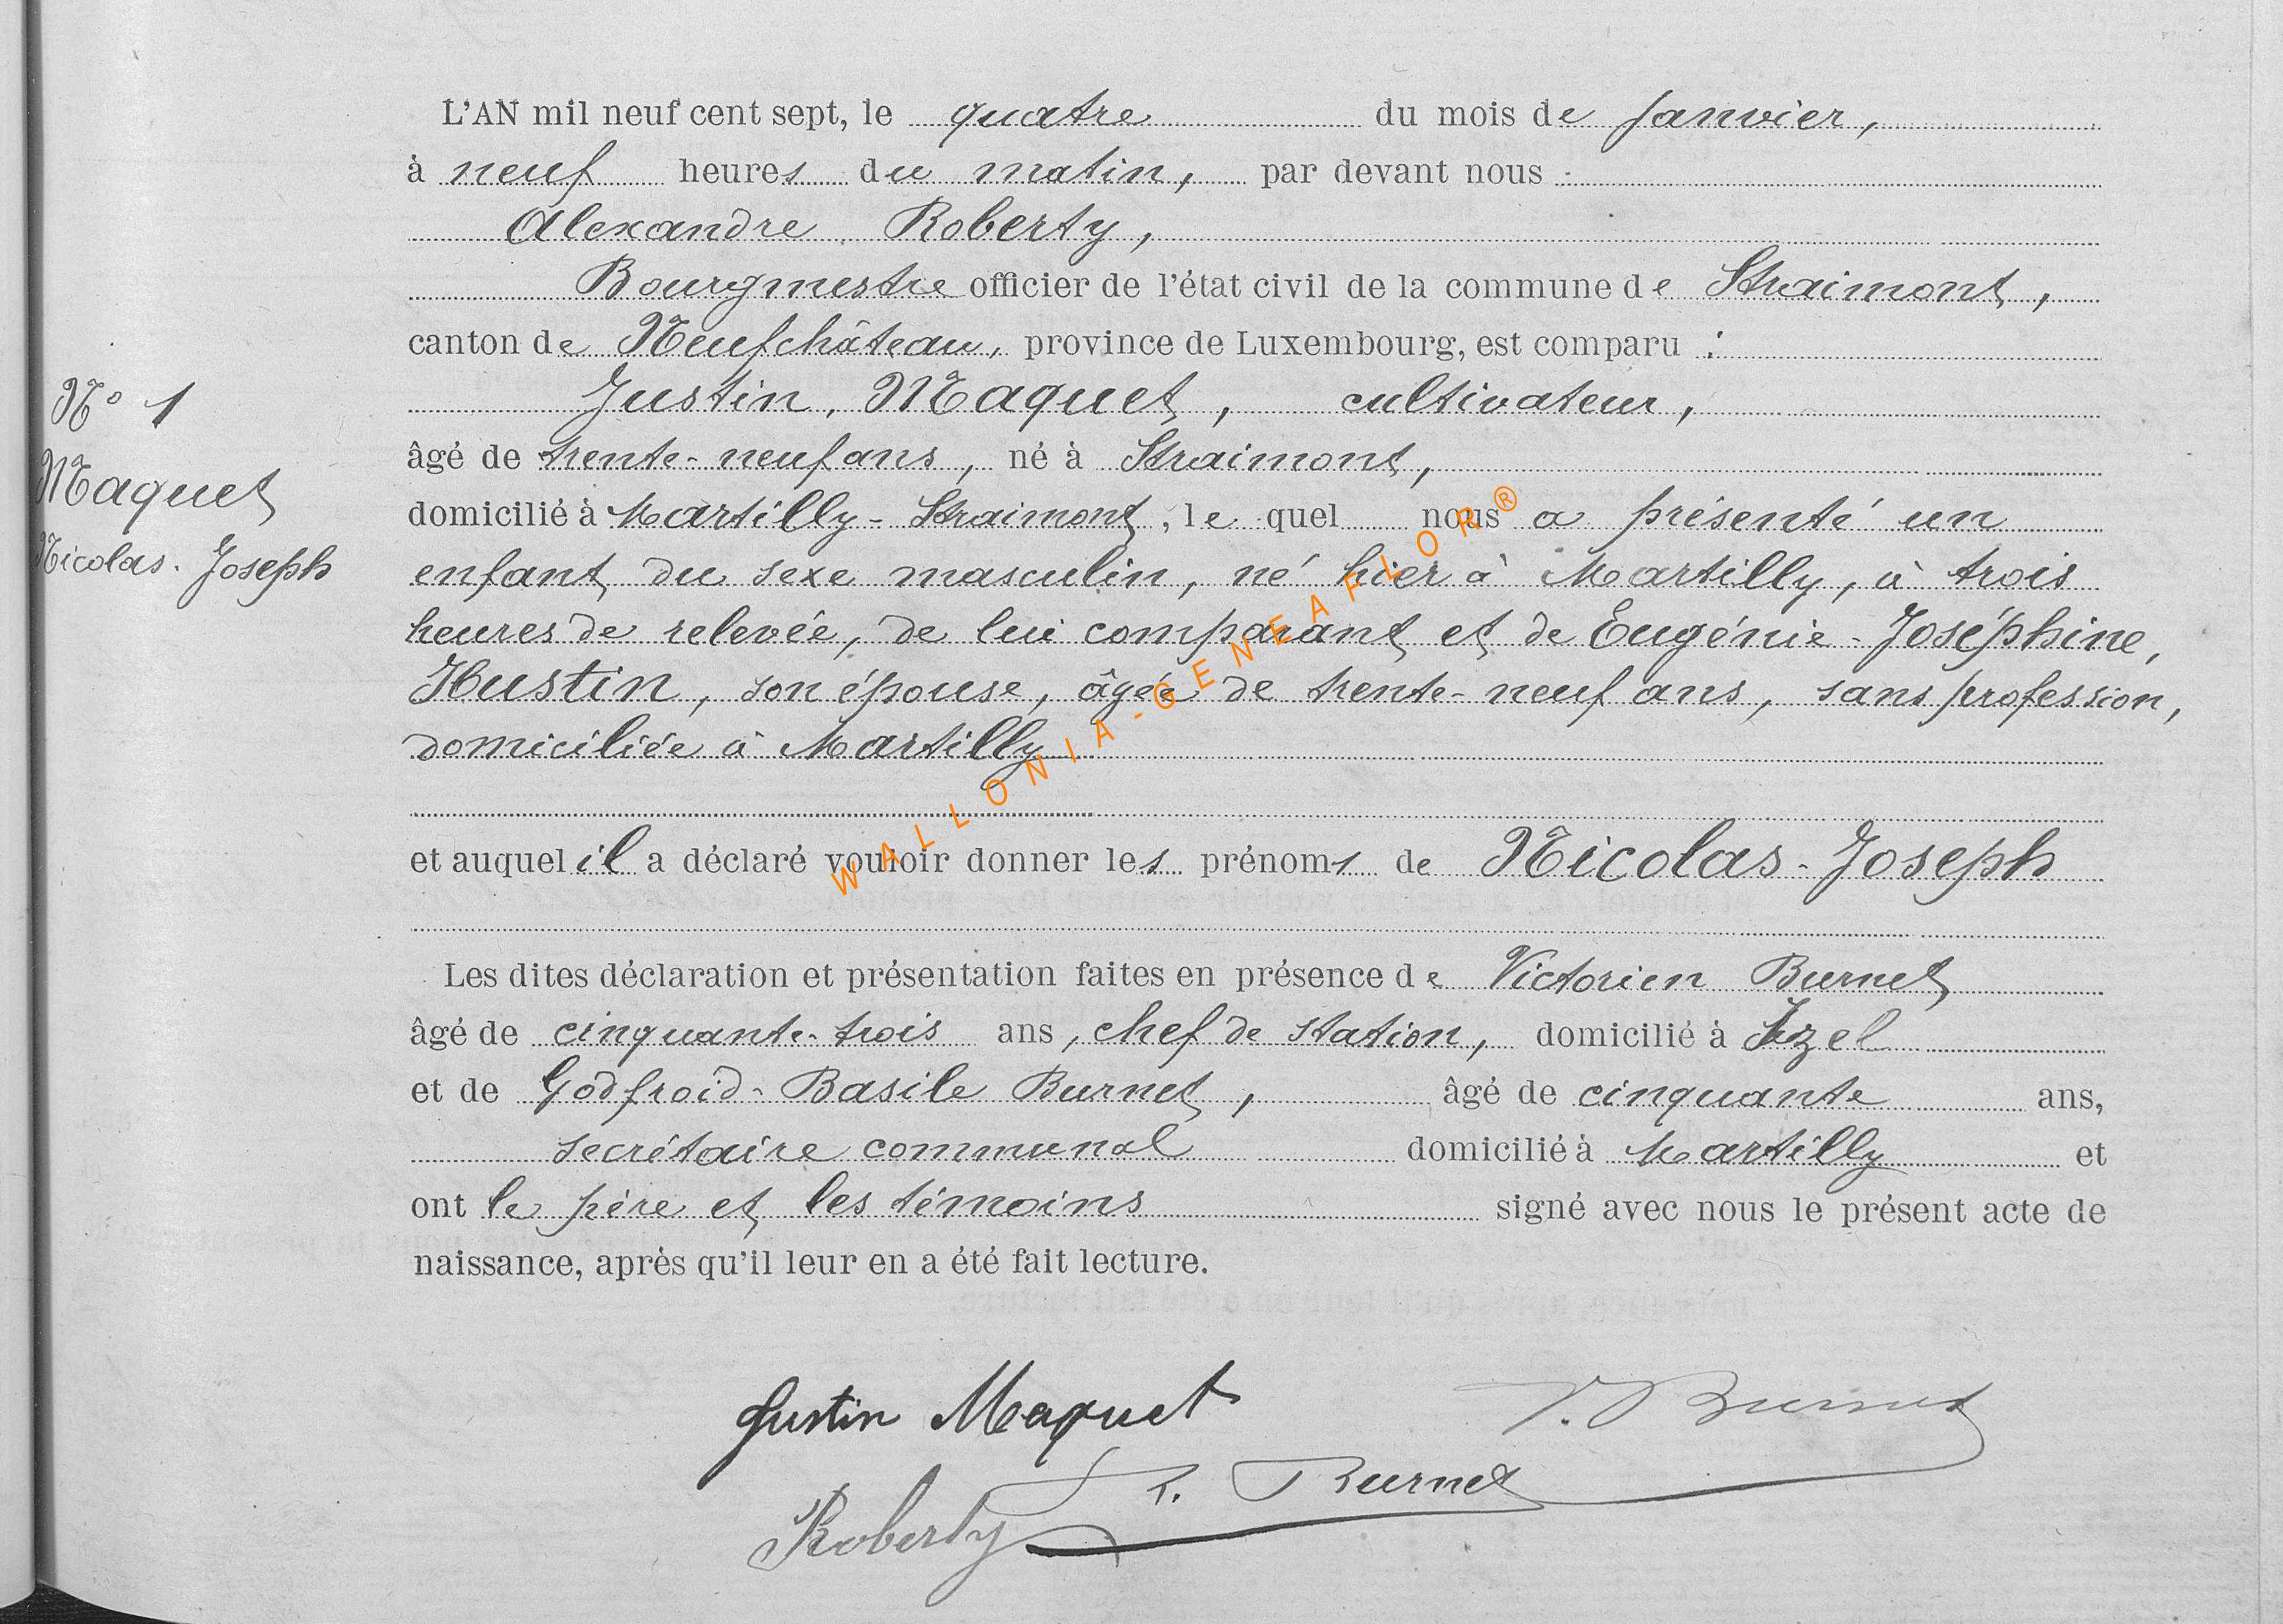 L'AN mil neuf cent sept, le quatre du mois de Janvier,
à neuf heures du matin, par devant nous
Alexandre Roberty,
Bourgmestre officier de l'état civil de la commune de Straimont,
canton de Neufchâteau, province de Luxembourg, est comparu :
Justin, Maquet, cultivateur,
N° 1
âgé de trente-neuf ans, né à Straimont,
Maquet
domicilié à Martilly-Straimont, lequel nous a présenté un
Nicolas-Joseph
enfant du sexe masculin, né hier à Martilly, à trois
heures de relevée, de lui comparant et de Eugénie-Joséphine,
Hustin, son épouse, âgée de trente-neuf ans, sans profession,
domiciliée à Martilly
WALLONIA-GENEAFLOR®
et auquel il a déclaré vouloir donner les prénoms de Nicolas-Joseph
Les dites déclaration et présentation faites en présence de Victorien Burnet
âgé de cinquante-trois ans, chef de station, domicilié à Izel
et de Godfroid-Basile Burnet, âgé de cinquante ans,
secrétaire communal domicilié à Martilly et
ont le père et les témoins signé avec nous le présent acte de
naissance, après qu'il leur en a été fait lecture.
Justin Maquet V. Burnet
Burnet
Roberty